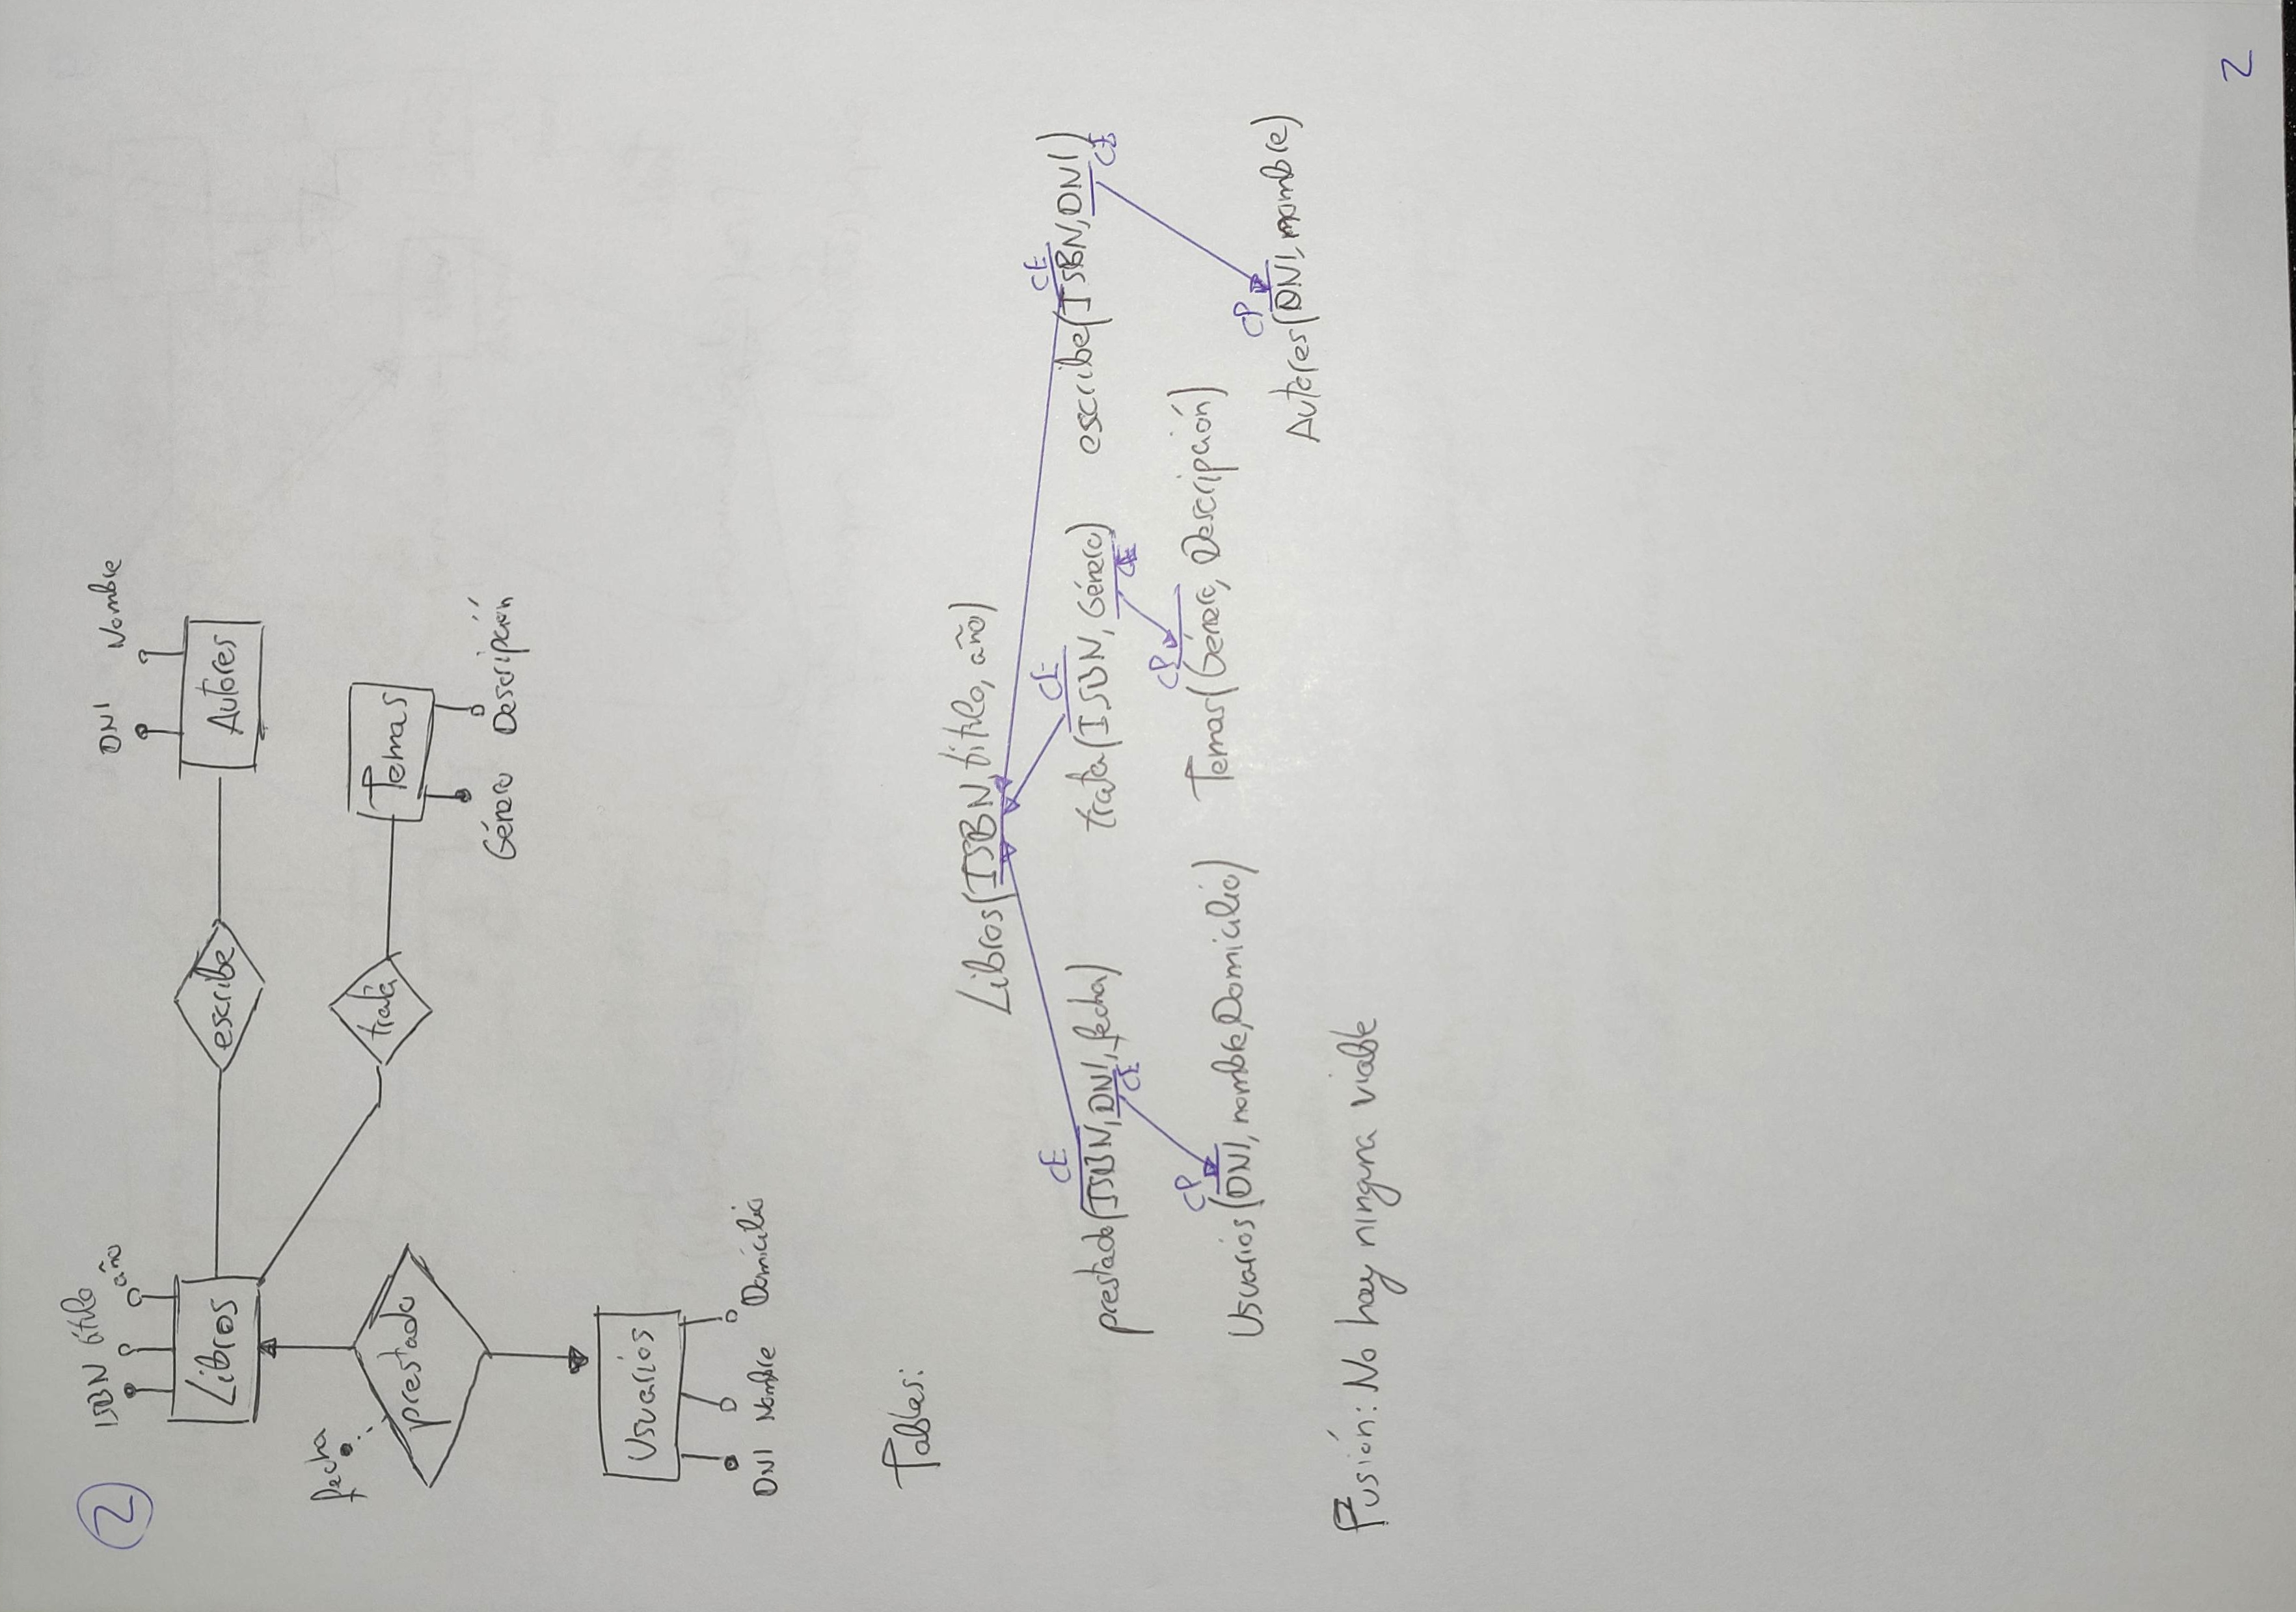 2
ISBN título año
DNI Nombre
Libros escribe Autores
fecha
prestado trata Temas
Género Descripción
Usuarios
DNI Nombre Domicilio
Tablas:
Libros(ISBN, título, año)
CE CE CE
prestado(ISBN, DNI, fecha) trata(ISBN, Género) escribe(ISBN, DNI)
CE CE CE
CP CP
Usuarios(DNI, nombre, Domicilio) Temas(Género, Descripción)
CP
Autores(DNI, nombre)
Fusión: No hay ninguna viable
2